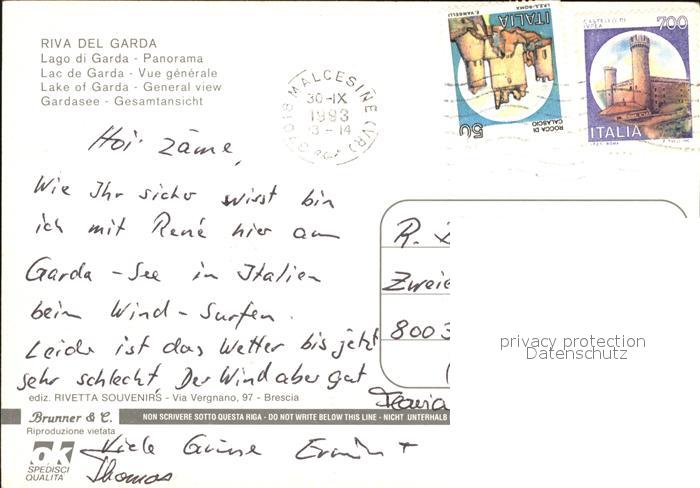 RIVA DEL GARDA
Lago di Garda - Panorama
Lac de Garda - Vue générale
Lake of Garda - General view
Gardasee - Gesamtansicht
37018 MALCESINE (VR)
30-IX
1993
13-14
I.P.Z.S.-ROMA E. VANGELLI
ITALIA
ROCCA DI CALASCIO
50
CASTELLO DI IVREA
700
ITALIA
I.P.Z.S. ROMA
Hoi zäme,
Wie Ihr sicher wisst bin
ich mit René hier am
Garda-See in Italien
beim Wind-Surfen.
Leider ist das Wetter bis jetzt
sehr schlecht, Der Wind aber gut
Viele Grüsse
Thomas
R.
8003
privacy protection
Datenschutz
ediz. RIVETTA SOUVENIRS - Via Vergnano, 97 - Brescia
Brunner & C.
NON SCRIVERE SOTTO QUESTA RIGA - DO NOT WRITE BELOW THIS LINE - NICHT UNTERHALB
Riproduzione vietata
ok
SPEDISCI
QUALITÀ